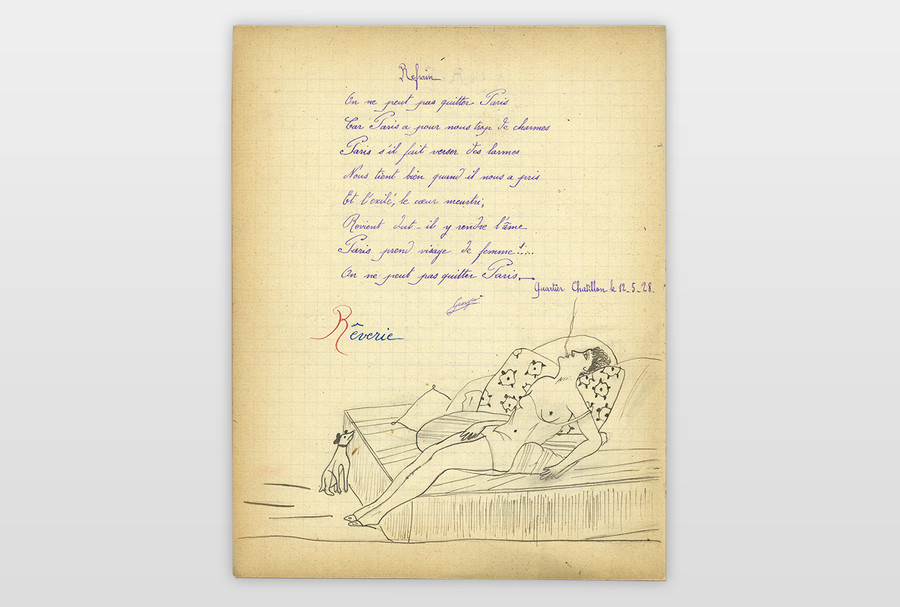 Refrain
On ne peut pas quitter Paris
Car Paris a pour nous trop de charmes
Paris s'il fait verser des larmes
Nous tient bien quand il nous a pris
Et l'exilé, le cœur meurtri,
Revient dut-il y rendre l'âme
Paris prend visage de femme !....
On ne peut pas quitter Paris.
Quartier Chatillon le 12-5-28.
Rêverie